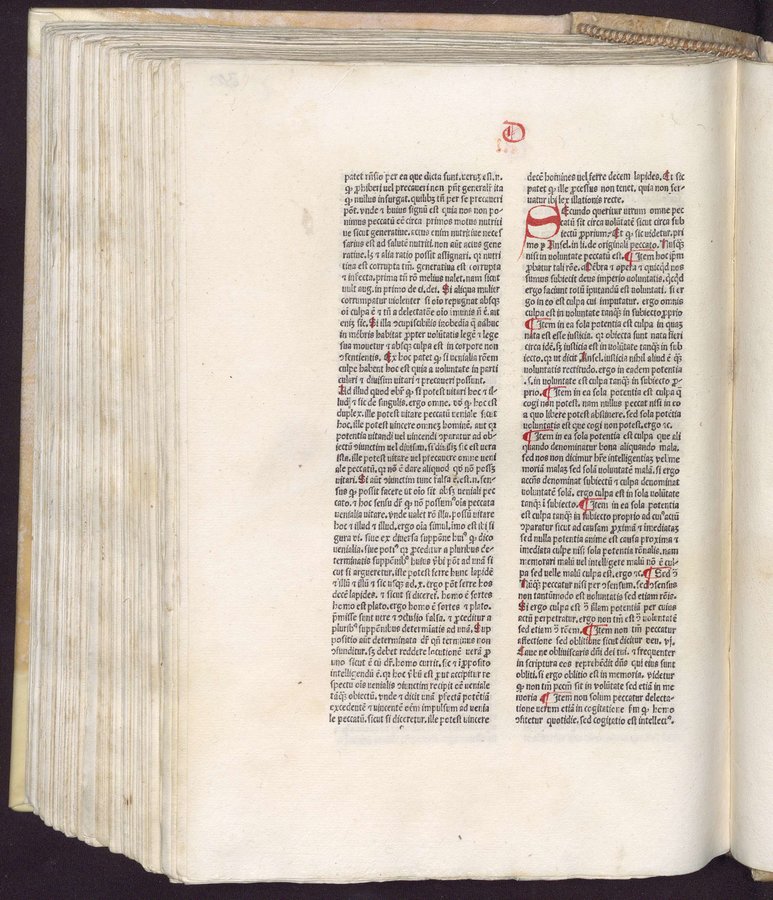 D
patet rñsio per ea que dicta sunt. verũ est. n.
ꝙ ꝓhiberi vel precaueri non pñt generalr̄ ita
ꝙ nullus insurgat. quilibꝫ tñ per se precaueri
põt. vnde ꝛ huius signũ est quia nos non po
nimus peccatũ eē circa primos motus nutriti
ue sicut generatiue. actus enim nutritiue neces
sarius est ad salutē nutriti. non aũt actus gene
ratiue. lꝫ ꝛ alia ratio possit assignari. qꝛ nutri
tina est corrupta tm̄. generatiua est corrupta
ꝛ infecta. prima tñ rō melius valet. nam sicut
vult aug. in primo de ci. dei. Si aliqua mulier
corrumpatur violenter si oīo repugnat absqꝫ
oī culpa ē ꝛ tñ a delectatōe oīo īmunis ñ ē. aut
enīꝫ sic. Si illa ꝯcupiscibilis inobediā q̄ adhuc
in mēbris habitat ꝓpter volūtatis legē ꝛ lege
sua mouetur ꝛ absqꝫ culpa est in corpore non
ꝯsentientis. Ex hoc patet ꝙ si venialia rōem
culpe habent hoc est quia a voluntate in parti
culari ꝛ diuisim vitari ꝛ precaueri possunt.
Ad illud quod obr̄ ꝙ si potest vitari hoc ꝛ il-
lud ꝛ sic de singulis. ergo omne. dō ꝙ hoc est
duplex. ille potest vitare peccatū veniale sicut
hoc. ille potest vincere omneꝫ hominē. aut eꝛ
potentia vitandi vel vincendi ꝯparatur ad ob-
iectū ꝯiunctim vel diuisim. si diuisiꝫ sic est vera
ista. ille potest vitare vel precauere omne veni
ale peccatū. qꝛ nō ē dare aliquod qꝺ nō possꝫ
vitari. Si aũt ꝯiunctim tunc falsa ē. est. n. sen-
sus ꝙ possit facere ut oīo sit absqꝫ veniali pec
cato. ꝛ hoc sensu dr̄ ꝙ nō possumꝰ oīa peccata
venialia vitare. vnde valet rō illa. possū vitare
hoc ꝛ illud ꝛ illud. ergo oīa simul. imo est ibi fi
gura vi. siue ex diuersa suppōne huiꝰ ꝙ dico
venialia. siue potiꝰ qꝛ ꝓceditur a pluribus de-
terminatis suppōnibꝰ huius vbi põt ad unā si
cut si argueretur. ille potest ferre hunc lapidē
ꝛ illū ꝛ illū ꝛ sic usqꝫ ad. x. ergo põt ferre hos
decē lapides. ꝛ sicut si diceret. homo ē sortes
homo est plato. ergo homo ē sortes ꝛ plato.
ꝓmisse sunt vere ꝛ ꝯclusio falsa. ꝛ ꝓceditur a
pluribꝰ suppōnibus determiatis ad unā. Sup
positio aũt determinata dr̄ qñ terminus non
ꝯfunditur. sꝫ debet reddere locutionē verā ꝓ
uno sicut ē cū dr̄. homo currit. sic ꝛ ī ꝓposito
intelligendū ē. qꝛ hoc ꝟbū est ꝓut accipitur re
spectu oīs venialis ꝯiunctim recipit eē veniale
tāqꝫ obiectū. vnde ꝛ dicit unā ꝓfectā potētiā
excedentē ꝛ vincentē oēm impulsum ad venia
le peccatū. sicut si diceretur. ille potest vincere
decē homines uel ferre decem lapides. Et sic
patet ꝙ ille ꝓcessus non tenet. quia non ser-
uatur ibi lex illationis recte.
SEcundo queritur utrum omne pec
catū sit circa volūtatē sicut circa sub
iectū ꝓprium. Et ꝙ sic videtur. pri
mo ꝑ Ansel. in li. de originali peccato. Nusqꝫ
nisi in voluntate peccatū est. ¶ Item hoc ipm̄
ꝓbatur tali rōe. Mēbra ꝛ opera ꝛ quicqd nos
sumus subiecit deus imperio uoluntatis. qcqd
ergo faciunt totū iputandū est voluntati. si er
go in eo est culpa cui imputatur. ergo omnis
culpa est in uoluntate tanqꝫ in subiecto ꝓprio
¶ Item in ea sola potentia est culpa in quaꝫ
nata est esse iusticia. qꝛ obiecta sunt nata fieri
circa idē. sꝫ iusticia est in uolūtate tanqꝫ in sub
iecto. qꝛ ut dicit Ansel. iusticia nihil aliud ē qꝫ
voluntatis rectitudo. ergo in eadem potentia
.s. in uoluntate est culpa tanqꝫ in subiecto ꝓ-
prio. ¶ Item in ea sola potentia est culpa q̄
cogi non potest. nam nullus peccat nisi in eo
a quo libere potest abstinere. sed sola potētia
voluntatis est que cogi non potest. ergo ꝛc.
¶ Item in ea sola potentia est culpa que ali
quando denominatur bona aliquando mala.
sed nos non dicimur hr̄e intelligentiaꝫ vel me
moriā malaꝫ sed solā voluntatē malā. si ergo
accn̄s denominat subiectū ꝛ culpa denominat
voluntatē solā. ergo culpa est in sola uolūtate
tanqꝫ ī subiecto. ¶ Item in ea sola potentia
est culpa tanqꝫ in subiecto proprio ad cuiꝰ actū
ꝯparatur sicut ad causam ꝓximā ꝛ īmediataꝫ
sed nulla potentia anime est causa proxima ꝛ
īmediata culpe nisi sola potentia rōnalis. nam
memorari malū uel intelligere malū nō ē cul-
pa sed velle malū culpa est. ergo ꝛc. ¶ Sed ꝯͣ
Nūqꝫ peccatur nisi per ꝯsensum. sed ꝯsensus
non tantūmodo est voluntatis sed etiam rōis.
Si ergo culpa est ꝯͣ illam potentiā per cuius
actū perpetratur. ergo non tm̄ est ꝯͣ uoluntatē
sed etiam ꝯͣ rōem. ¶ Item non tm̄ peccatur
affectione sed obliuione sicut dicitur deu. vj.
Caue ne obliuiscaris dn̄i dei tui. ꝛ frequenter
in scriptura eos reprehēdit dn̄s qui eius sunt
obliti. si ergo oblitio est in memoria. videtur
ꝙ non tm̄ pcm̄ sit in uolūtate sed etiā in me
moria ¶ Item non solum peccatur delecta-
tione uerum etiā in cogitatione fm̄ ꝙ homo
ꝯfitetur quotidie. sed cogitatio est intellecꝰ.